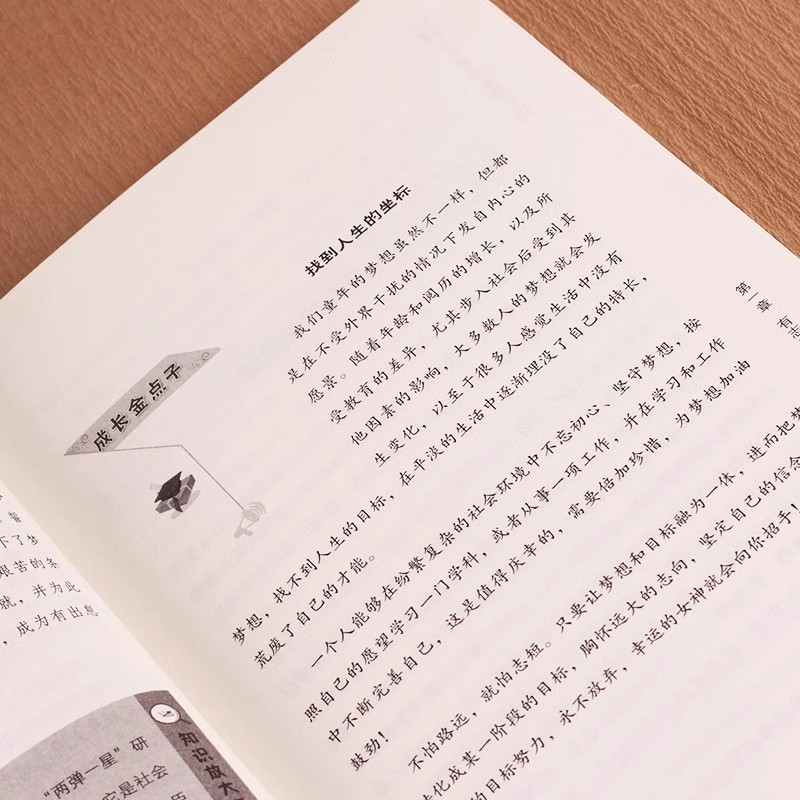 智
下了梦
艰苦的条
就，并为此
，成为有出息
知识放大
“两弹一星”研
它是社会
历
成长金点子
找到人生的坐标
我们童年的梦想虽然不一样，但都
是在不受外界干扰的情况下发自内心的
愿景。随着年龄和阅历的增长，以及所
受教育的差异，尤其步入社会后受到其
他因素的影响，大多数人的梦想就会发
生变化，以至于很多人感觉生活中没有
梦想，找不到人生的目标，在平淡的生活中逐渐埋没了自己的特长，
荒废了自己的才能。
一个人能够在纷繁复杂的社会环境中不忘初心、坚守梦想，按
照自己的愿望学习一门学科，或者从事一项工作，并在学习和工作
中不断完善自己，这是值得庆幸的，需要倍加珍惜，为梦想加油
鼓劲！
不怕路远，就怕志短。只要让梦想和目标融为一体，进而把梦
转化成某一阶段的目标，胸怀远大的志向，坚定自己的信念
的目标努力，永不放弃，幸运的女神就会向你招手！
第一章 有志